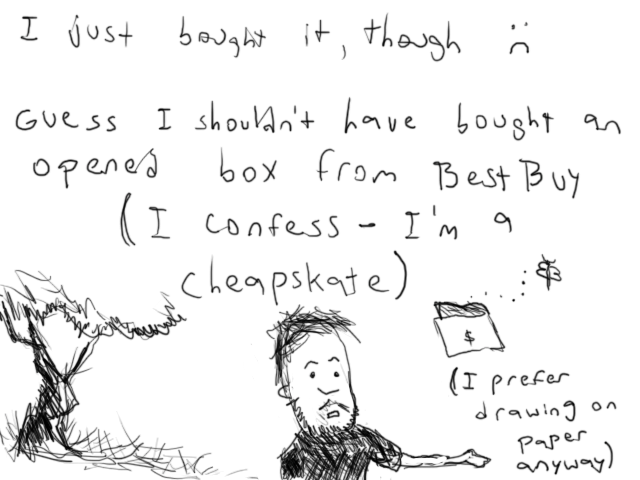 I just bought it, though :(
Guess I shouldn't have bought an
opened box from Best Buy
(I confess - I'm a
cheapskate)
$
(I prefer
drawing on
paper
anyway)